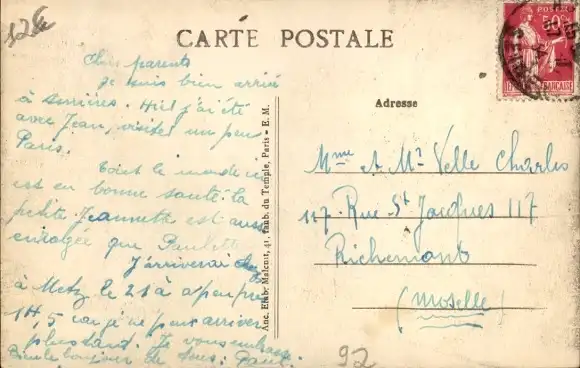 CARTE POSTALE
Chers parents
je suis bien arrivé
à Hier j'ai été
avec Jean, visiter un peu
Paris.
Tout le monde ici
est en bonne santé. la
petite Jeannette est aussi
enragée que Paulette
J'arriverai chez
à Metz le 21 à à peu près
14,5 car je ne peux arriver
plus tard. Je vous embrasse.
Bien le bonjour de tous. Paul.
Anc. Etab. Malcuit, 41, faub. du Temple, Paris - E. M.
POSTES
50c
FRANÇAISE
Adresse
Mme et Mr Velle Charles
117 Rue St Jacques 117
Richemont
(Moselle)
92